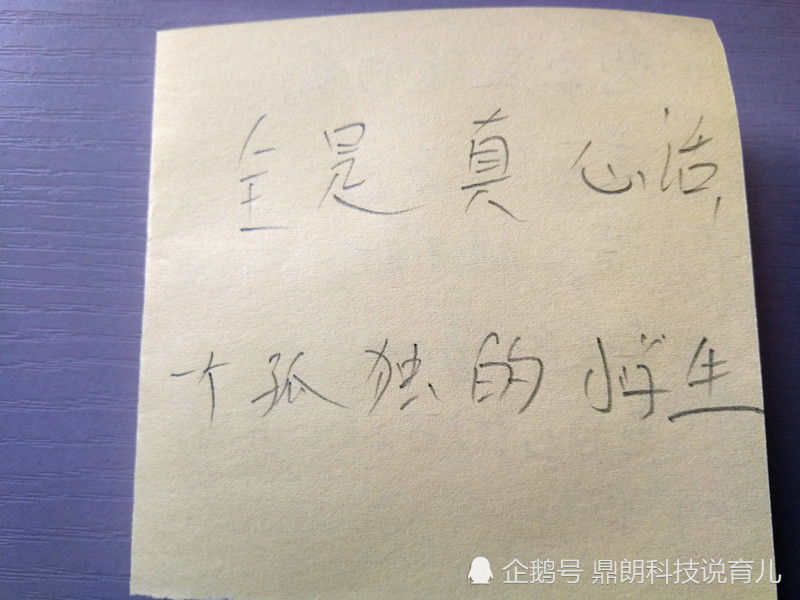 全是真心话,
一个孤独的学生
企鹅号 鼎朗科技说育儿